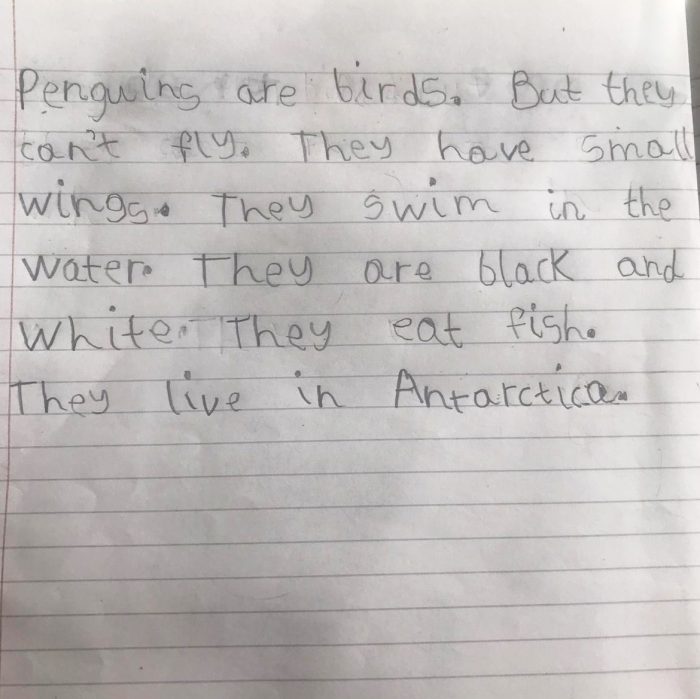 Penguins are birds. But they
can't fly. They have small
wings. They swim in the
water. They are black and
white. They eat fish.
They live in Antarctica.